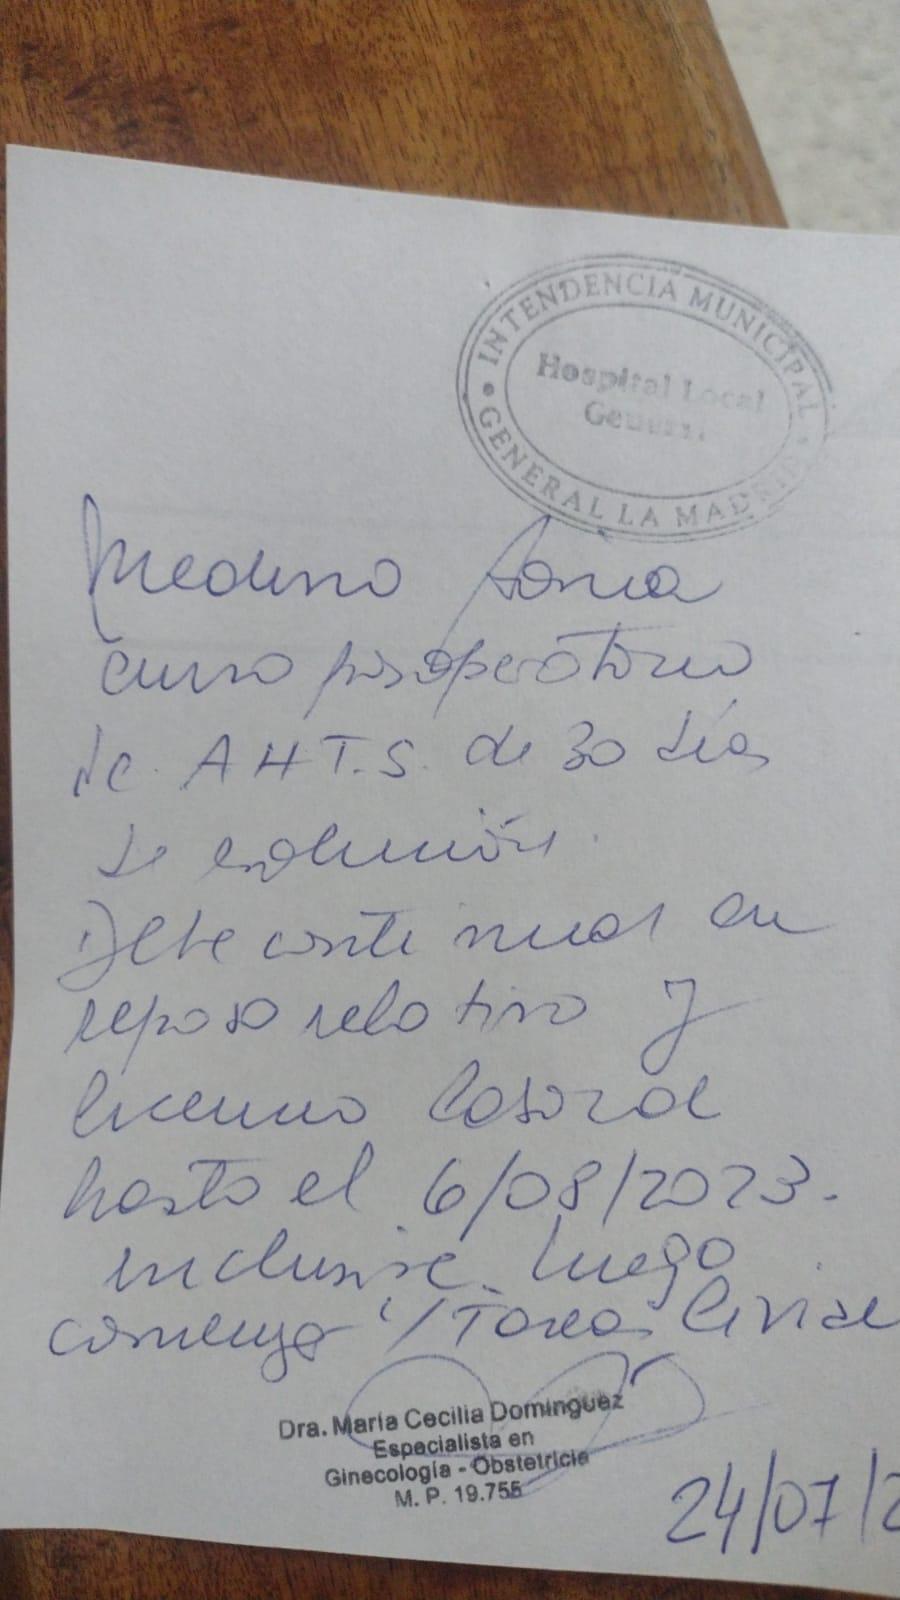 INTENDENCIA MUNICIPAL
Hospital Local
General
GENERAL LA MADRID
Medina Sonia
cursa posoperatorio
de A H T.S. de 30 días
de evolución.
Debe continuar en
reposo relativo y
licencia laboral
hasta el 6/08/2023.
inclusive. Luego
comenzar c/ Tareas livian
Dra. María Cecilia Dominguez
Especialista en
Ginecología - Obstetricia
M. P. 19.755
24/07/2